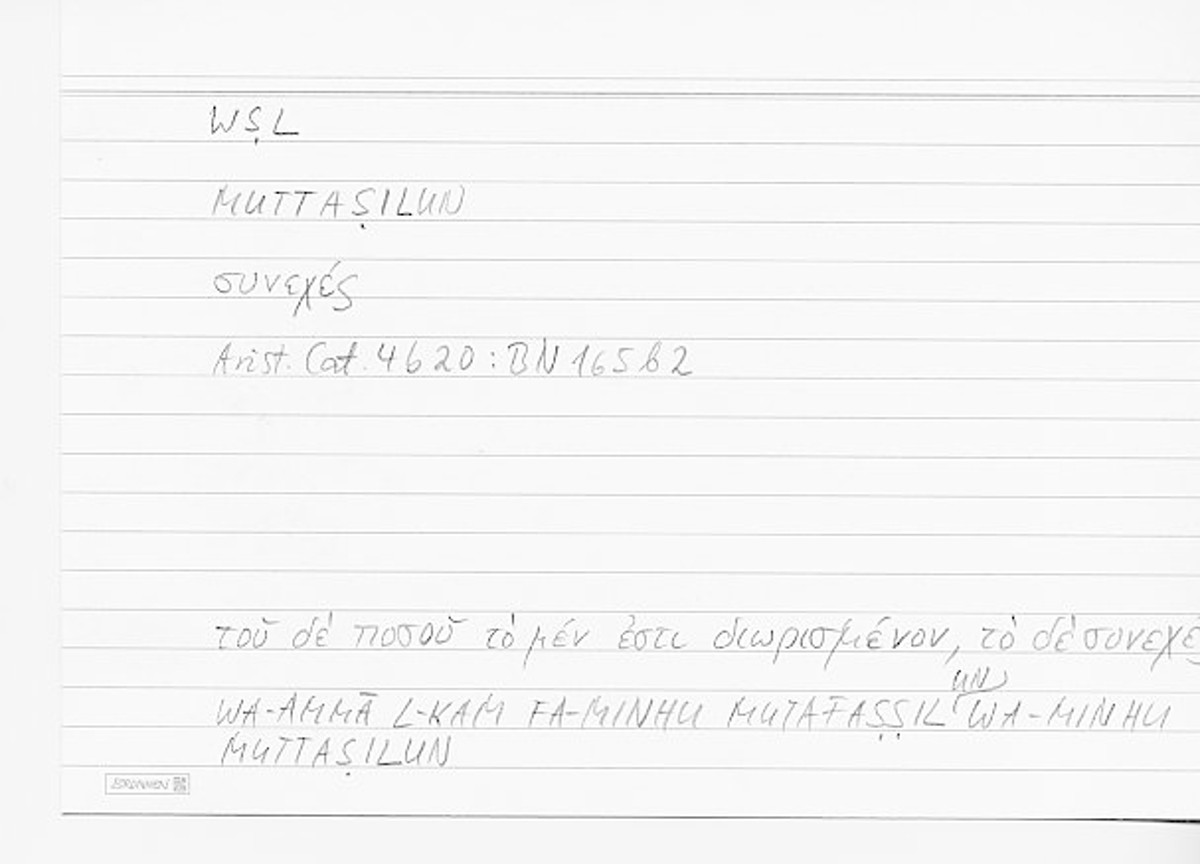 WṢL
MUTTAṢILUN
συνεχές
Arist. Cat. 4b20 : BN 165b2
τοῦ δὲ ποσοῦ τὸ μέν ἐστι διωρισμένον, τὸ δὲ συνεχές
UN
WA-AMMĀ L-KAM FA-MINHU MUTAFAṢṢIL WA-MINHU
MUTTAṢILUN
BRUNNEN